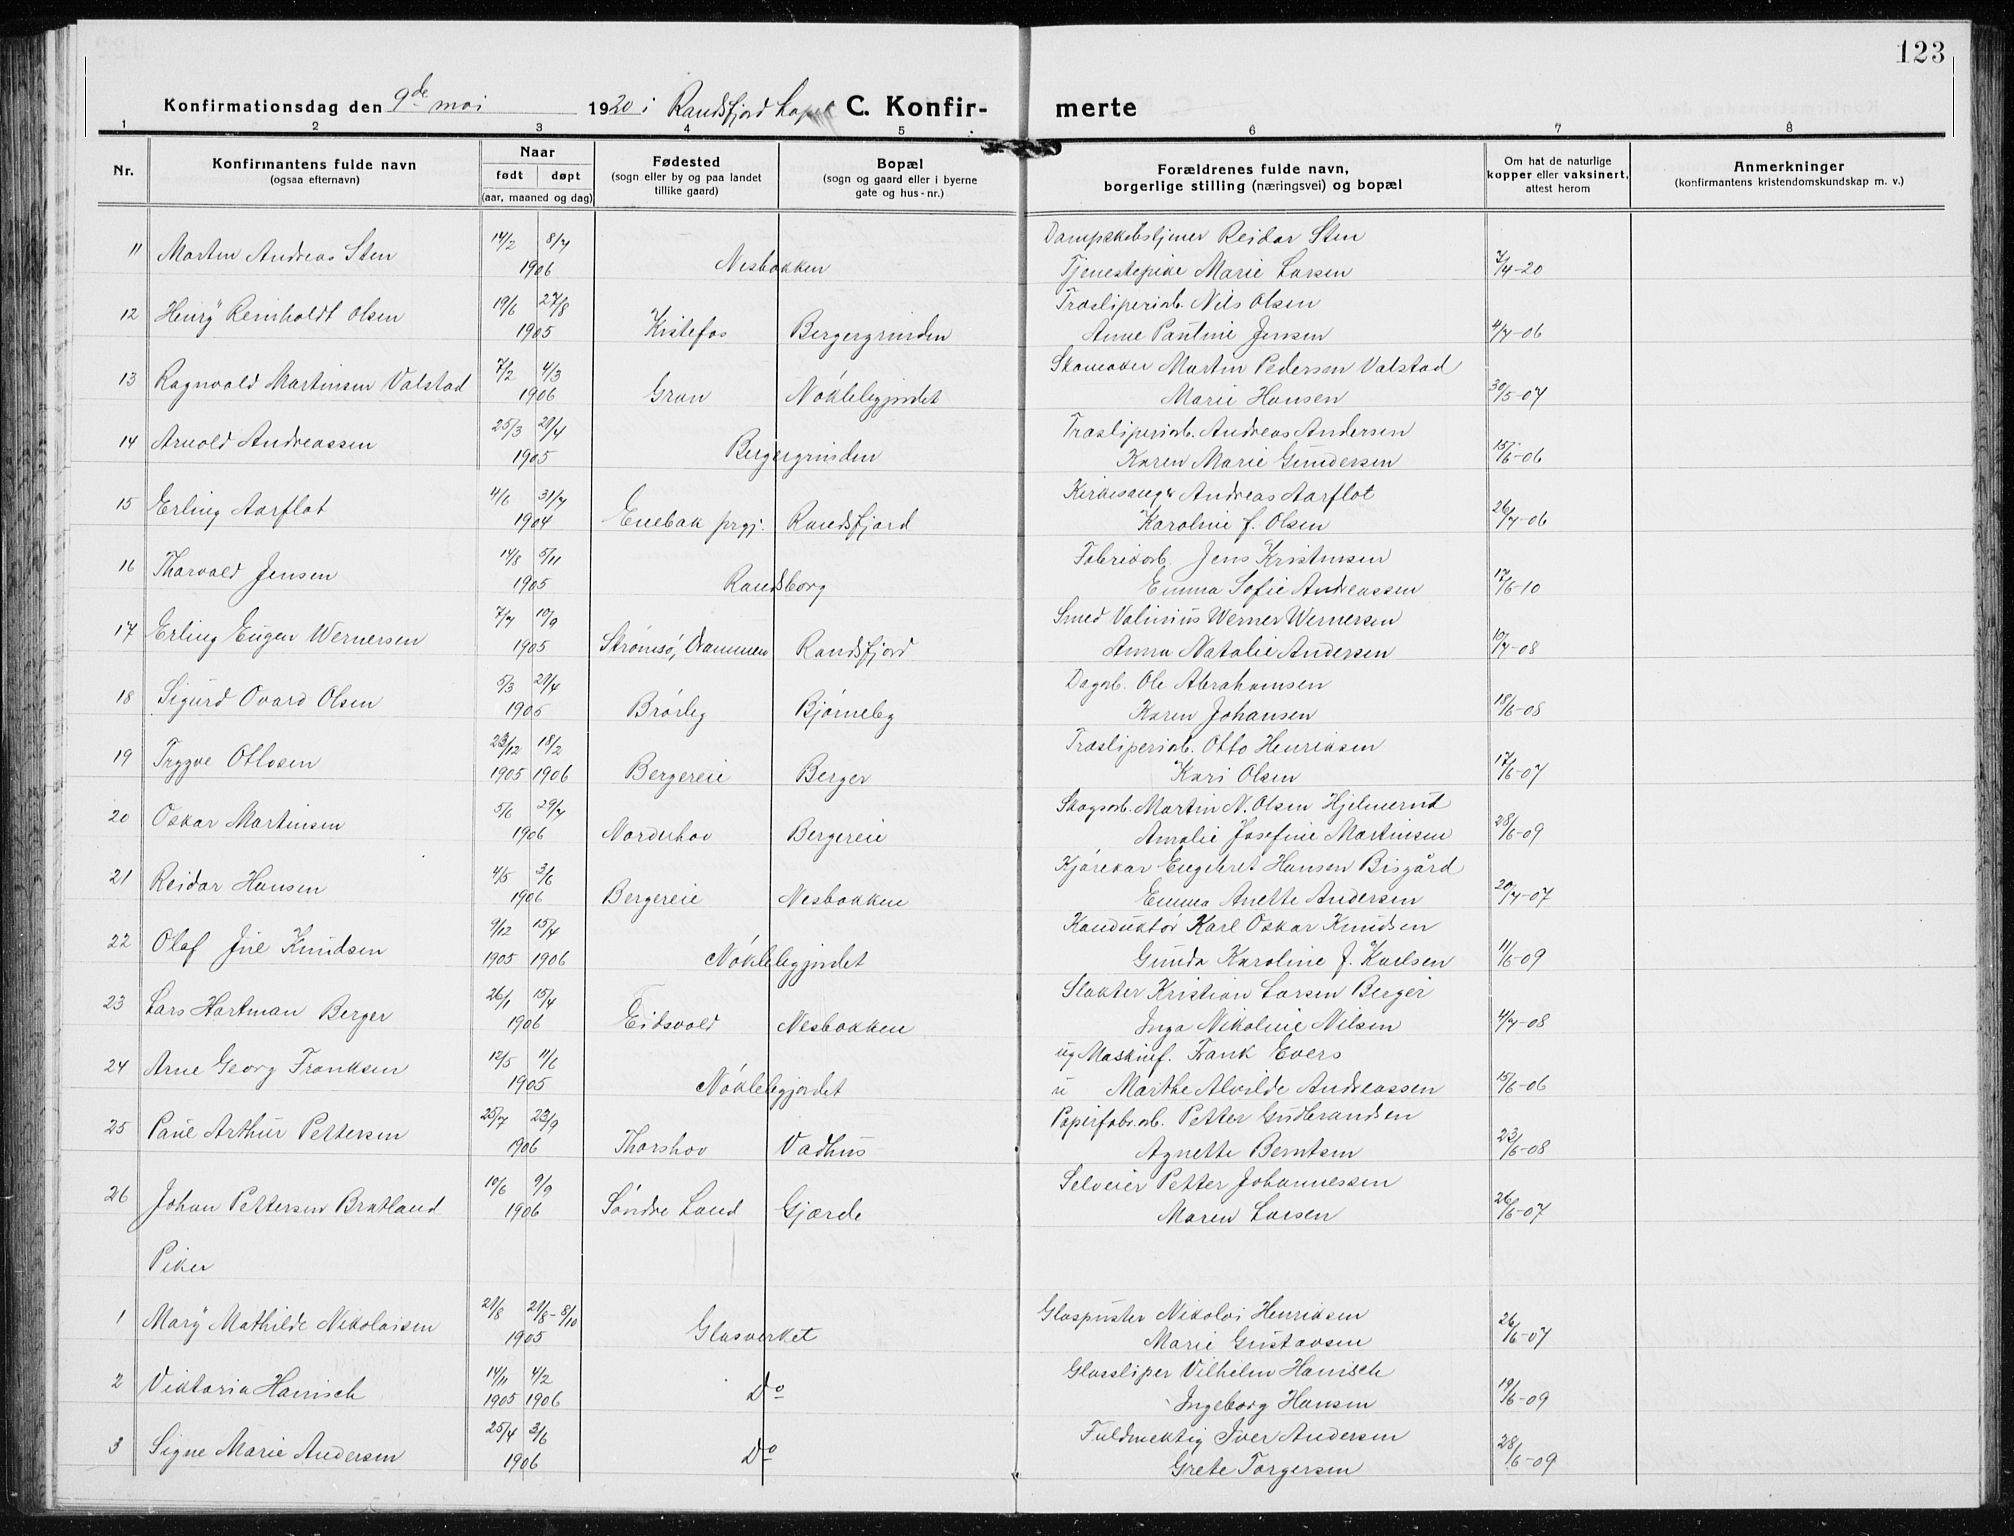 123
Konfirmationsdag den 9de mai 1920 i Randsfjord C. Konfirmerte
1 2 3 4 5 6 7 8
Nr. Konfirmantens fulde navn (ogsaa efternavn) Naar født døpt (aar, maaned og dag) Fødested (sogn eller by og paa landet tillike gaard) Bopæl (sogn og gaard eller i byerne gate og hus-nr.) Forældrenes fulde navn, borgerlige stilling (næringsvei) og bopæl Om hat de naturlige kopper eller vaksinert, attest herom Anmerkninger (konfirmantens kristendomskundskap m. v.)
14/2 8/7 Dampskibstjener Reidar Sten
11 Martin Andreas Sten 1906 Nesbakken Tjenestepike Marie Larsen 7/4-20
19/6 27/8 Træsliperiarb. Nils Olsen
12 Henry Reinholdt Olsen 1905 Kistefos Bergergrinden Anne Pauline Jensen 4/7-06
7/2 4/3 Skomaker Martin Pedersen Valstad
13 Ragnvald Martinsen Valstad 1906 Gran Nøklebygjordet Marie Hansen 30/5-07
25/3 21/4 Træsliperiarb. Andreas Andersen
14 Arnold Andreassen 1905 Bergergrinden Karen Marie Gundersen 15/6-06
4/6 31/7 Kirkesanger Andreas Aarflot
15 Erling Aarflot 1904 Enebak prgj. Randsfjord Karoline f. Olsen 26/7-06
14/8 5/11 Fabrikarb. Jens Kristensen
16 Thorvald Jensen 1905 Randsborg Emma Sofie Andreassen 17/6-10
7/7 10/9 Smed Valinius Werner Wernersen
17 Erling Eugen Wernersen 1905 Strømsø, Drammen Randsfjord Anna Natalie Andersen 10/7-08
5/3 21/4 Dagarb. Ole Abrahamsen
18 Sigurd Ovard Olsen 1905 Brørby Bjørneby Karen Johansen 18/6-08
23/12 18/2 Træsliperiarb. Otto Henriksen
19 Trygve Ottosen 1905 1906 Bergereie Berger Kari Olsen 17/6-07
5/6 29/7 Skogsarb. Martin N. Olsen Hjelmerud
20 Oskar Martinsen 1906 Norderhov Bergereie Amalie Josefine Martinsen 28/6-09
4/5 3/6 Kjørekar Engebret Hansen Bisgård
21 Reidar Hansen 1906 Bergereie Nesbakken Emma Anette Andersen 20/7-07
9/12 15/4 Konduktør Karl Oskar Knudsen
22 Olaf Juel Knudsen 1905 1906 Nøklebygjordet Gunda Karoline f. Karlsen 11/6-09
26/1 15/4 Slakter Kristian Larsen Berger
23 Lars Hartman Berger 1906 Eidsvold Nesbakken Inga Nikoline Nilsen 4/7-08
12/5 11/6 ug Maskinf. Frank Evers
24 Arne Georg Franksen 1905 Nøklebygjordet u Marthe Alvilde Andreassen 15/6-06
25/7 23/9 Papirfabr.arb. Petter Gudbrandsen
25 Paul Arthur Pettersen 1906 Thorshov Vadhus Agnette Berntsen 23/6-08
10/6 9/9 Selveier Petter Johannessen
26 Johan Pettersen Bratland 1906 Søndre Land Gjærde Maren Larsen 26/6-07
Piker
21/8 21/8-8/10 Glaspuster Nikolai Henriksen
1 Mary Mathilde Nikolaisen 1905 Glasverket Marie Gustavsen 26/6-07
14/11 4/2 Glassliper Vilhelm Hanisch
2 Viktoria Hanisch 1905 1906 Do Ingeborg Hansen 19/6-09
25/4 3/6 Fuldmektig Iver Andersen
3 Signe Marie Andersen 1906 Do Grete Torgersen 28/6-09